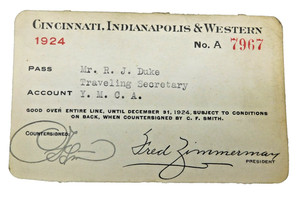 CINCINNATI, INDIANAPOLIS & WESTERN
1924 No. A 7967
PASS Mr. R. J. Duke
Traveling Secretary
ACCOUNT Y. M. C. A.
GOOD OVER ENTIRE LINE, UNTIL DECEMBER 31, 1924, SUBJECT TO CONDITIONS
ON BACK, WHEN COUNTERSIGNED BY C. F. SMITH.
COUNTERSIGNED:
Fred Zimmerman
PRESIDENT